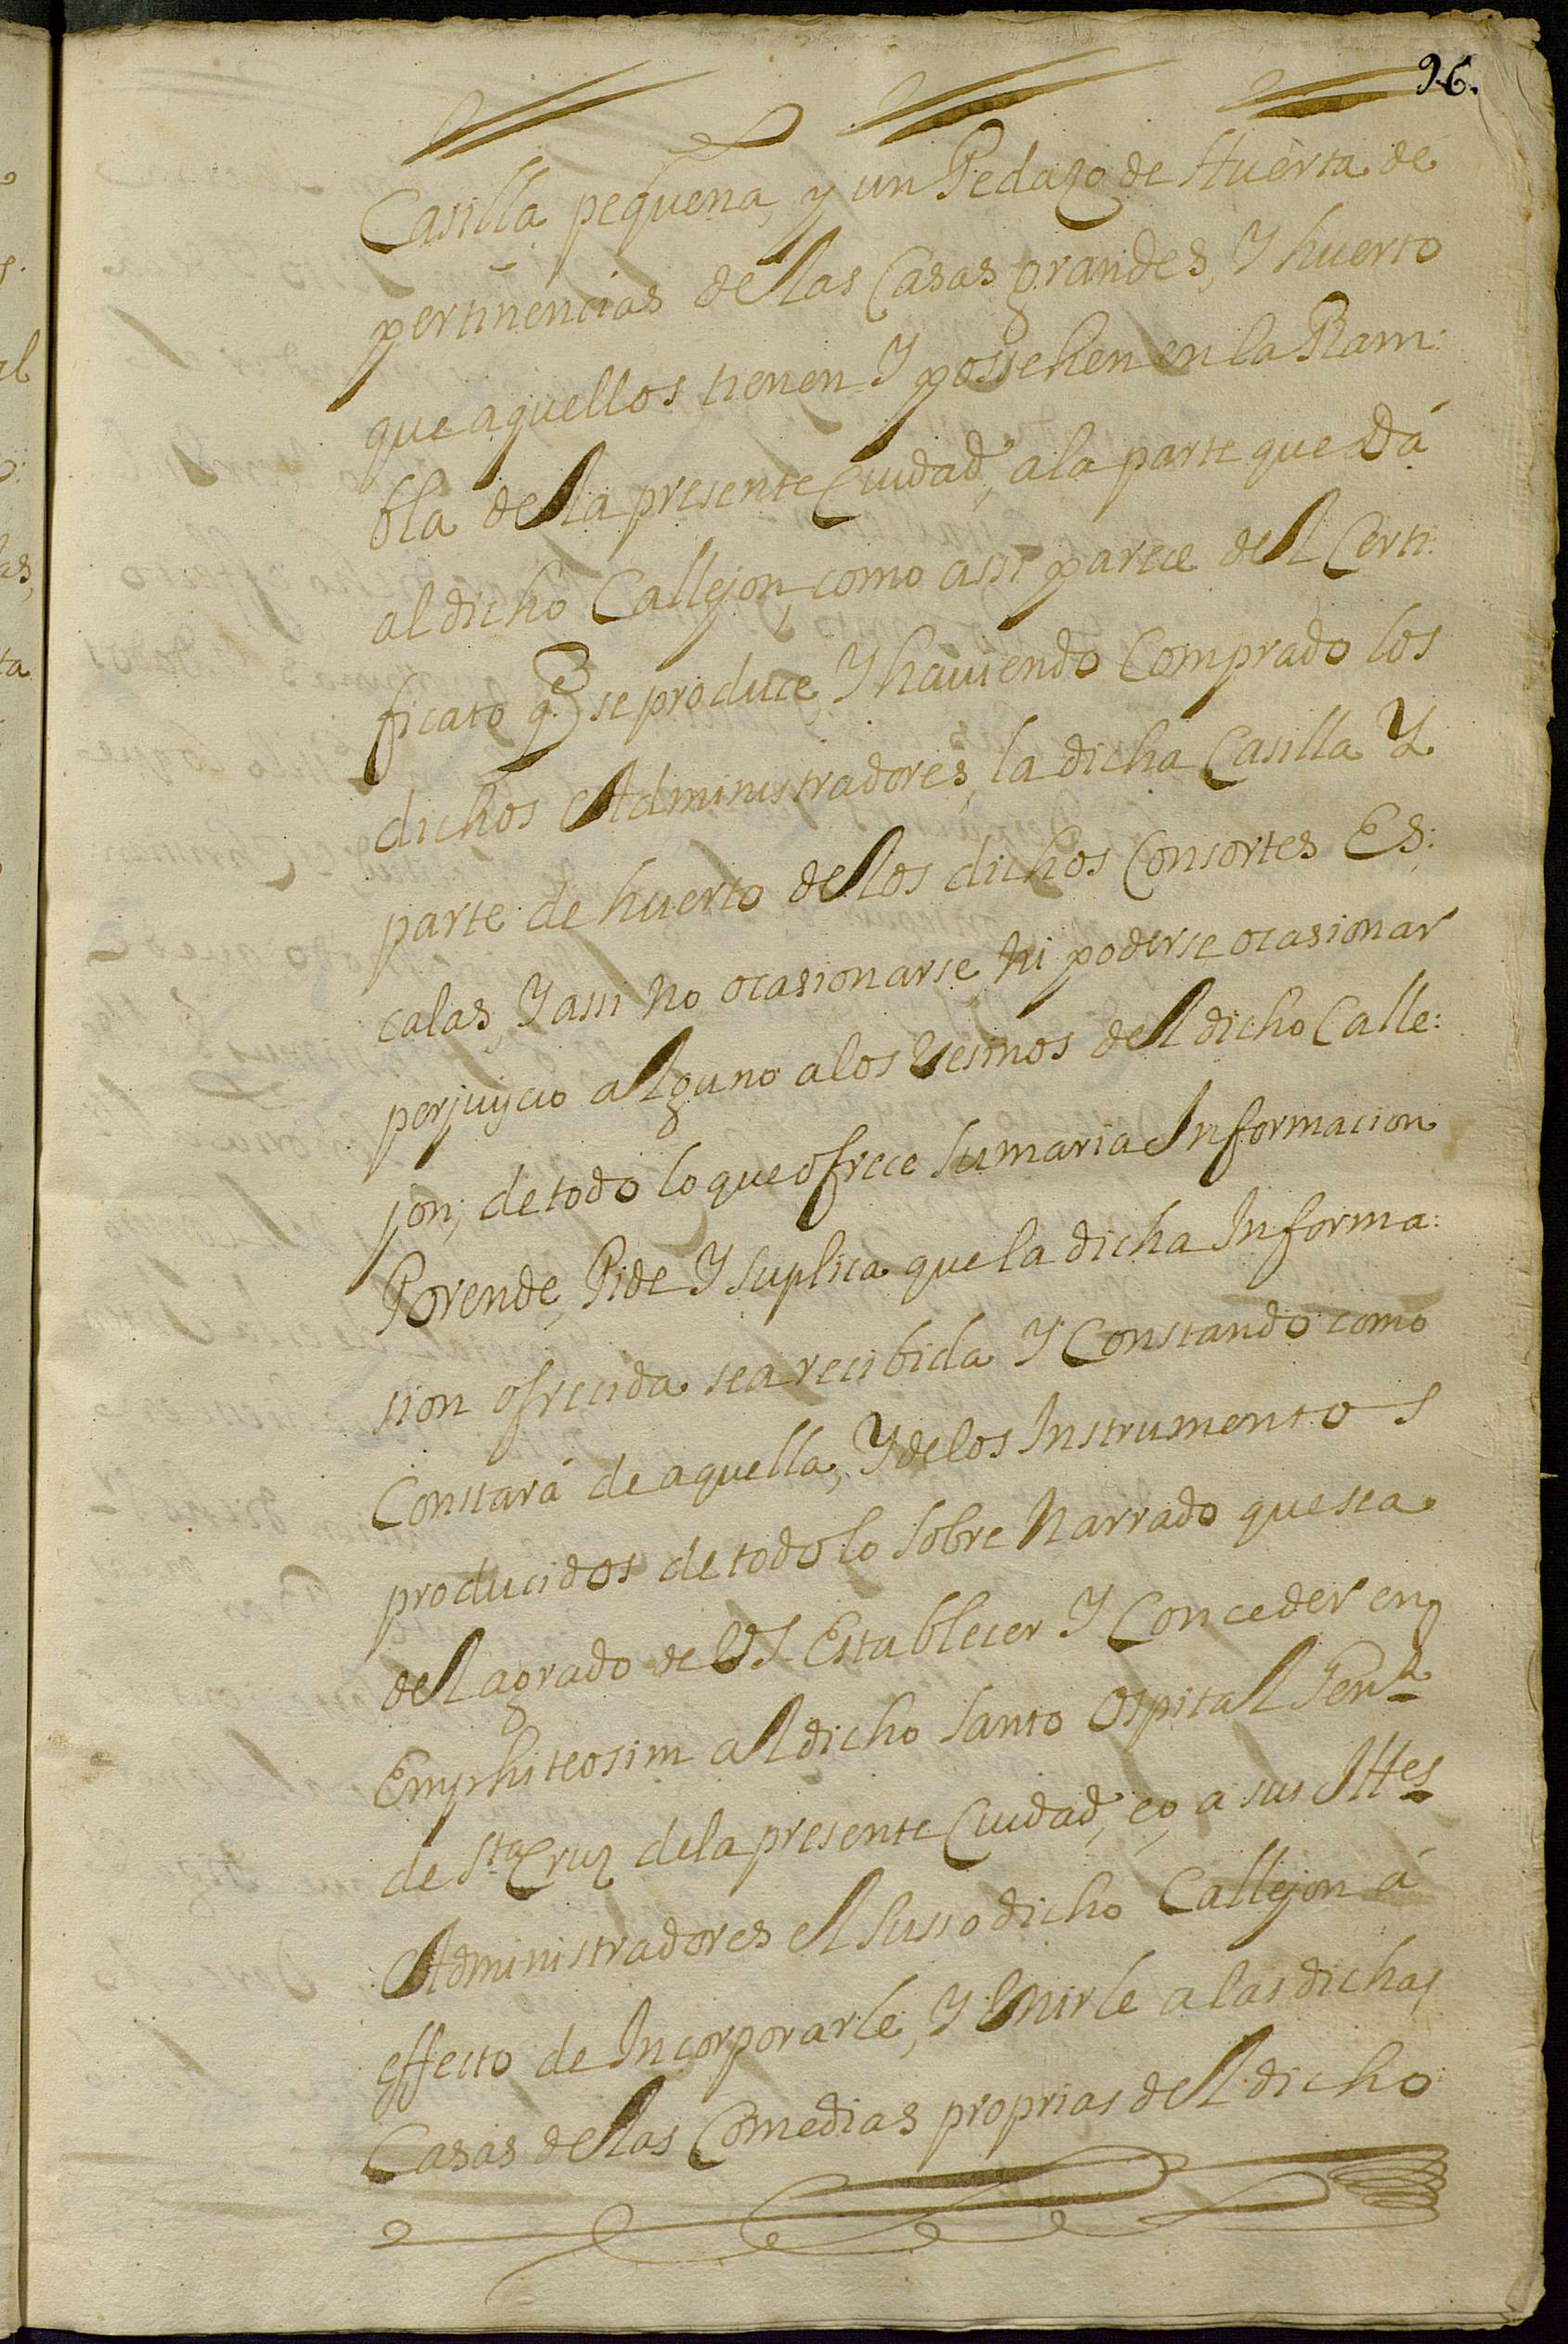 96.
Casilla pequeña, y un Pedazo de Huerta de
pertinencias de las Casas grandes, Y huerto
que aquellos tienen Y possehen en la Ram:
bla de la presente Ciudad, a la parte que dá
al dicho Callejon, como assi parece del Certi:
ficato q.e se produce, Y haviendo Comprado los
dichos Administradores, la dicha Casilla Y
parte de huerto de los dichos Consortes Es:
calas, Y assi no ocasionarse, ni poderse ocasionar
perjuycio alguno a los Vesinos del dicho Calle:
jon; de todo lo que ofrece Sumaria Informacion
Porende, Pide Y Suplica que la dicha Informa:
sion ofrecida sea recibida Y Constando como
Constará de aquella, Y de los Instrumentos
producidos de todo lo Sobre Narrado que sea
del agrado de VS. Establecer Y Conceder en
Emphiteosim al dicho Santo Ospital Gen.l
de S.ta Cruz de la presente Ciudad, eo, a sus Ill.es
Administradores el Sussodicho Callejon á
effecto de Incorporarle, Y Unirle a las dichas
Casas de las Comedias proprias del dicho